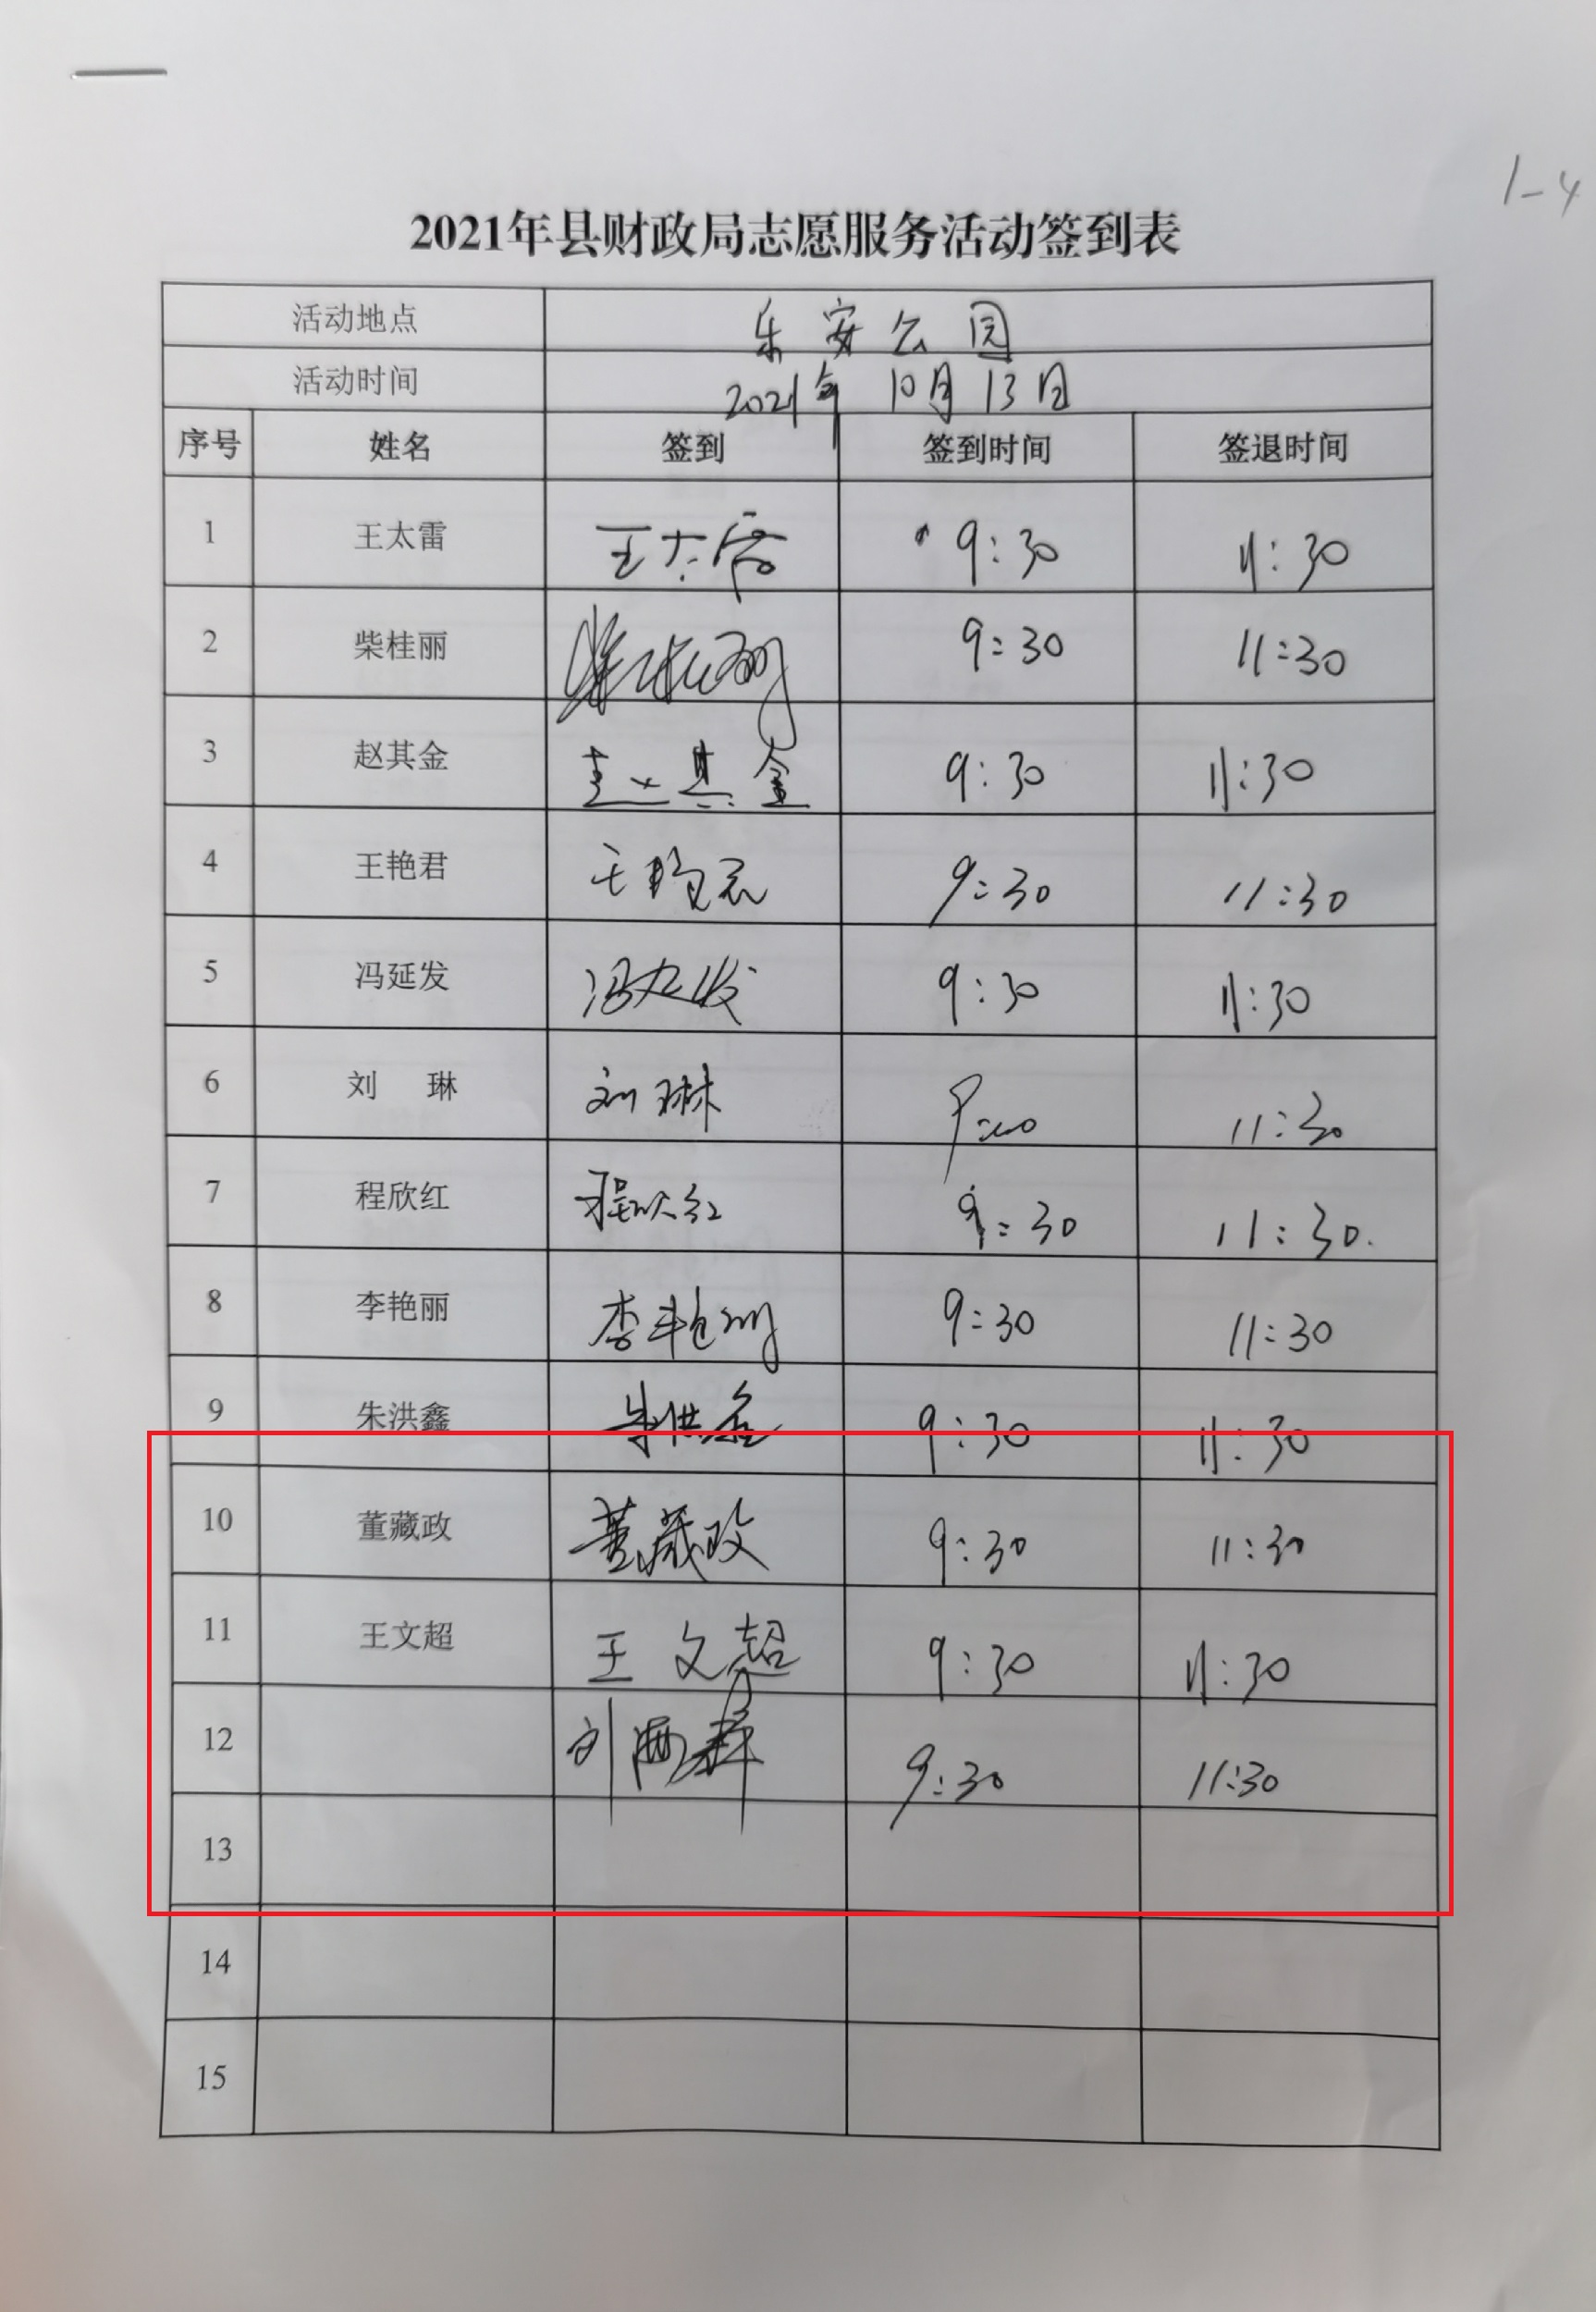 1-4
2021年县财政局志愿服务活动签到表
活动地点 乐安公园
活动时间 2021年10月13日
序号 姓名 签到 签到时间 签退时间
1 王太雷 王太雷 9:30 11:30
2 柴桂丽 柴桂丽 9:30 11:30
3 赵其金 赵其金 9:30 11:30
4 王艳君 王艳君 9:30 11:30
5 冯延发 冯延发 9:30 11:30
6 刘 琳 刘琳 11:30
7 程欣红 程欣红 9:30 11:30.
8 李艳丽 李艳丽 9:30 11:30
9 朱洪鑫 朱洪鑫 9:30 11:30
10 董藏政 董藏政 9:30 11:30
11 王文超 王文超 9:30 11:30
12 刘 9:30 11:30
13
14
15